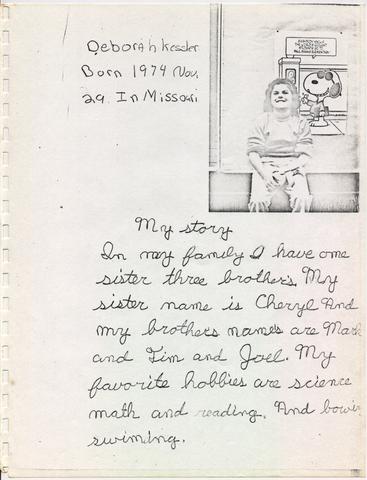 Deborah Kessler
Born 1974 Nov.
29. In Missouri
My story
In my family I have one
sister three brothers. My
sister name is Cheryl And
my brothers names are Mark
and Tim and Joel. My
favorite hobbies are science
math and reading. And
swiming.